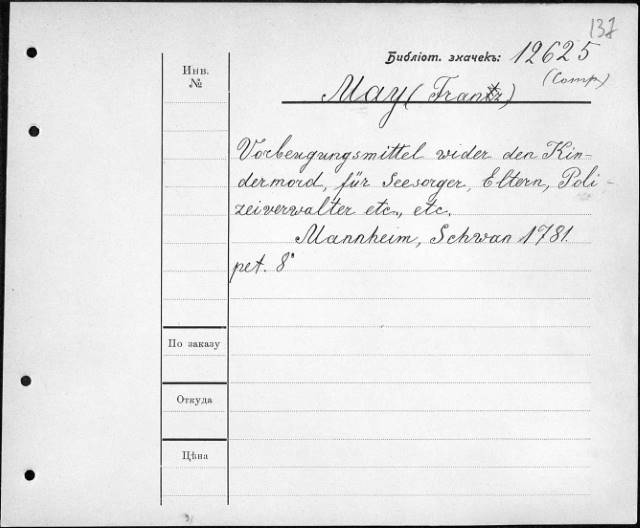 137
Библіот. значекъ: 12625
(Comp.)
Инв.
№
May (Frantz)
Vorbeugungsmittel wider den Kin-
dermord, für Seesorger, Eltern, Poli-
zeiverwalter etc., etc.
Mannheim, Schwan 1781.
pet. 8°
По заказу
Откуда
Цѣна